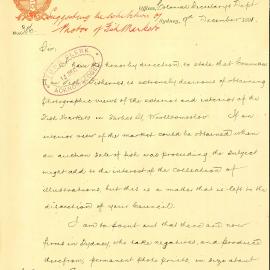 Colonial Secretary's Dept
Sydney, 9th December 1901.
Suggesting the exhibition of
Photos of Fish Markets
Sir,
have the honor by direction, to state that Commissioner
Fisheries, is extremely desirous of obtaining
photographic views of the exterior and interior of the
Fish Markets in Forbes St, Woolloomooloo. If an
interior view of the market could be obtained when
an auction sale of fish was proceeding the subject
might add to the interest of the collection of
illustrations, but this is a matter that is left to the
discretion of your Council.
I am to point out that there are now
firms in Sydney, who take negatives, and produce
therefrom, permanent photo prints, in size about